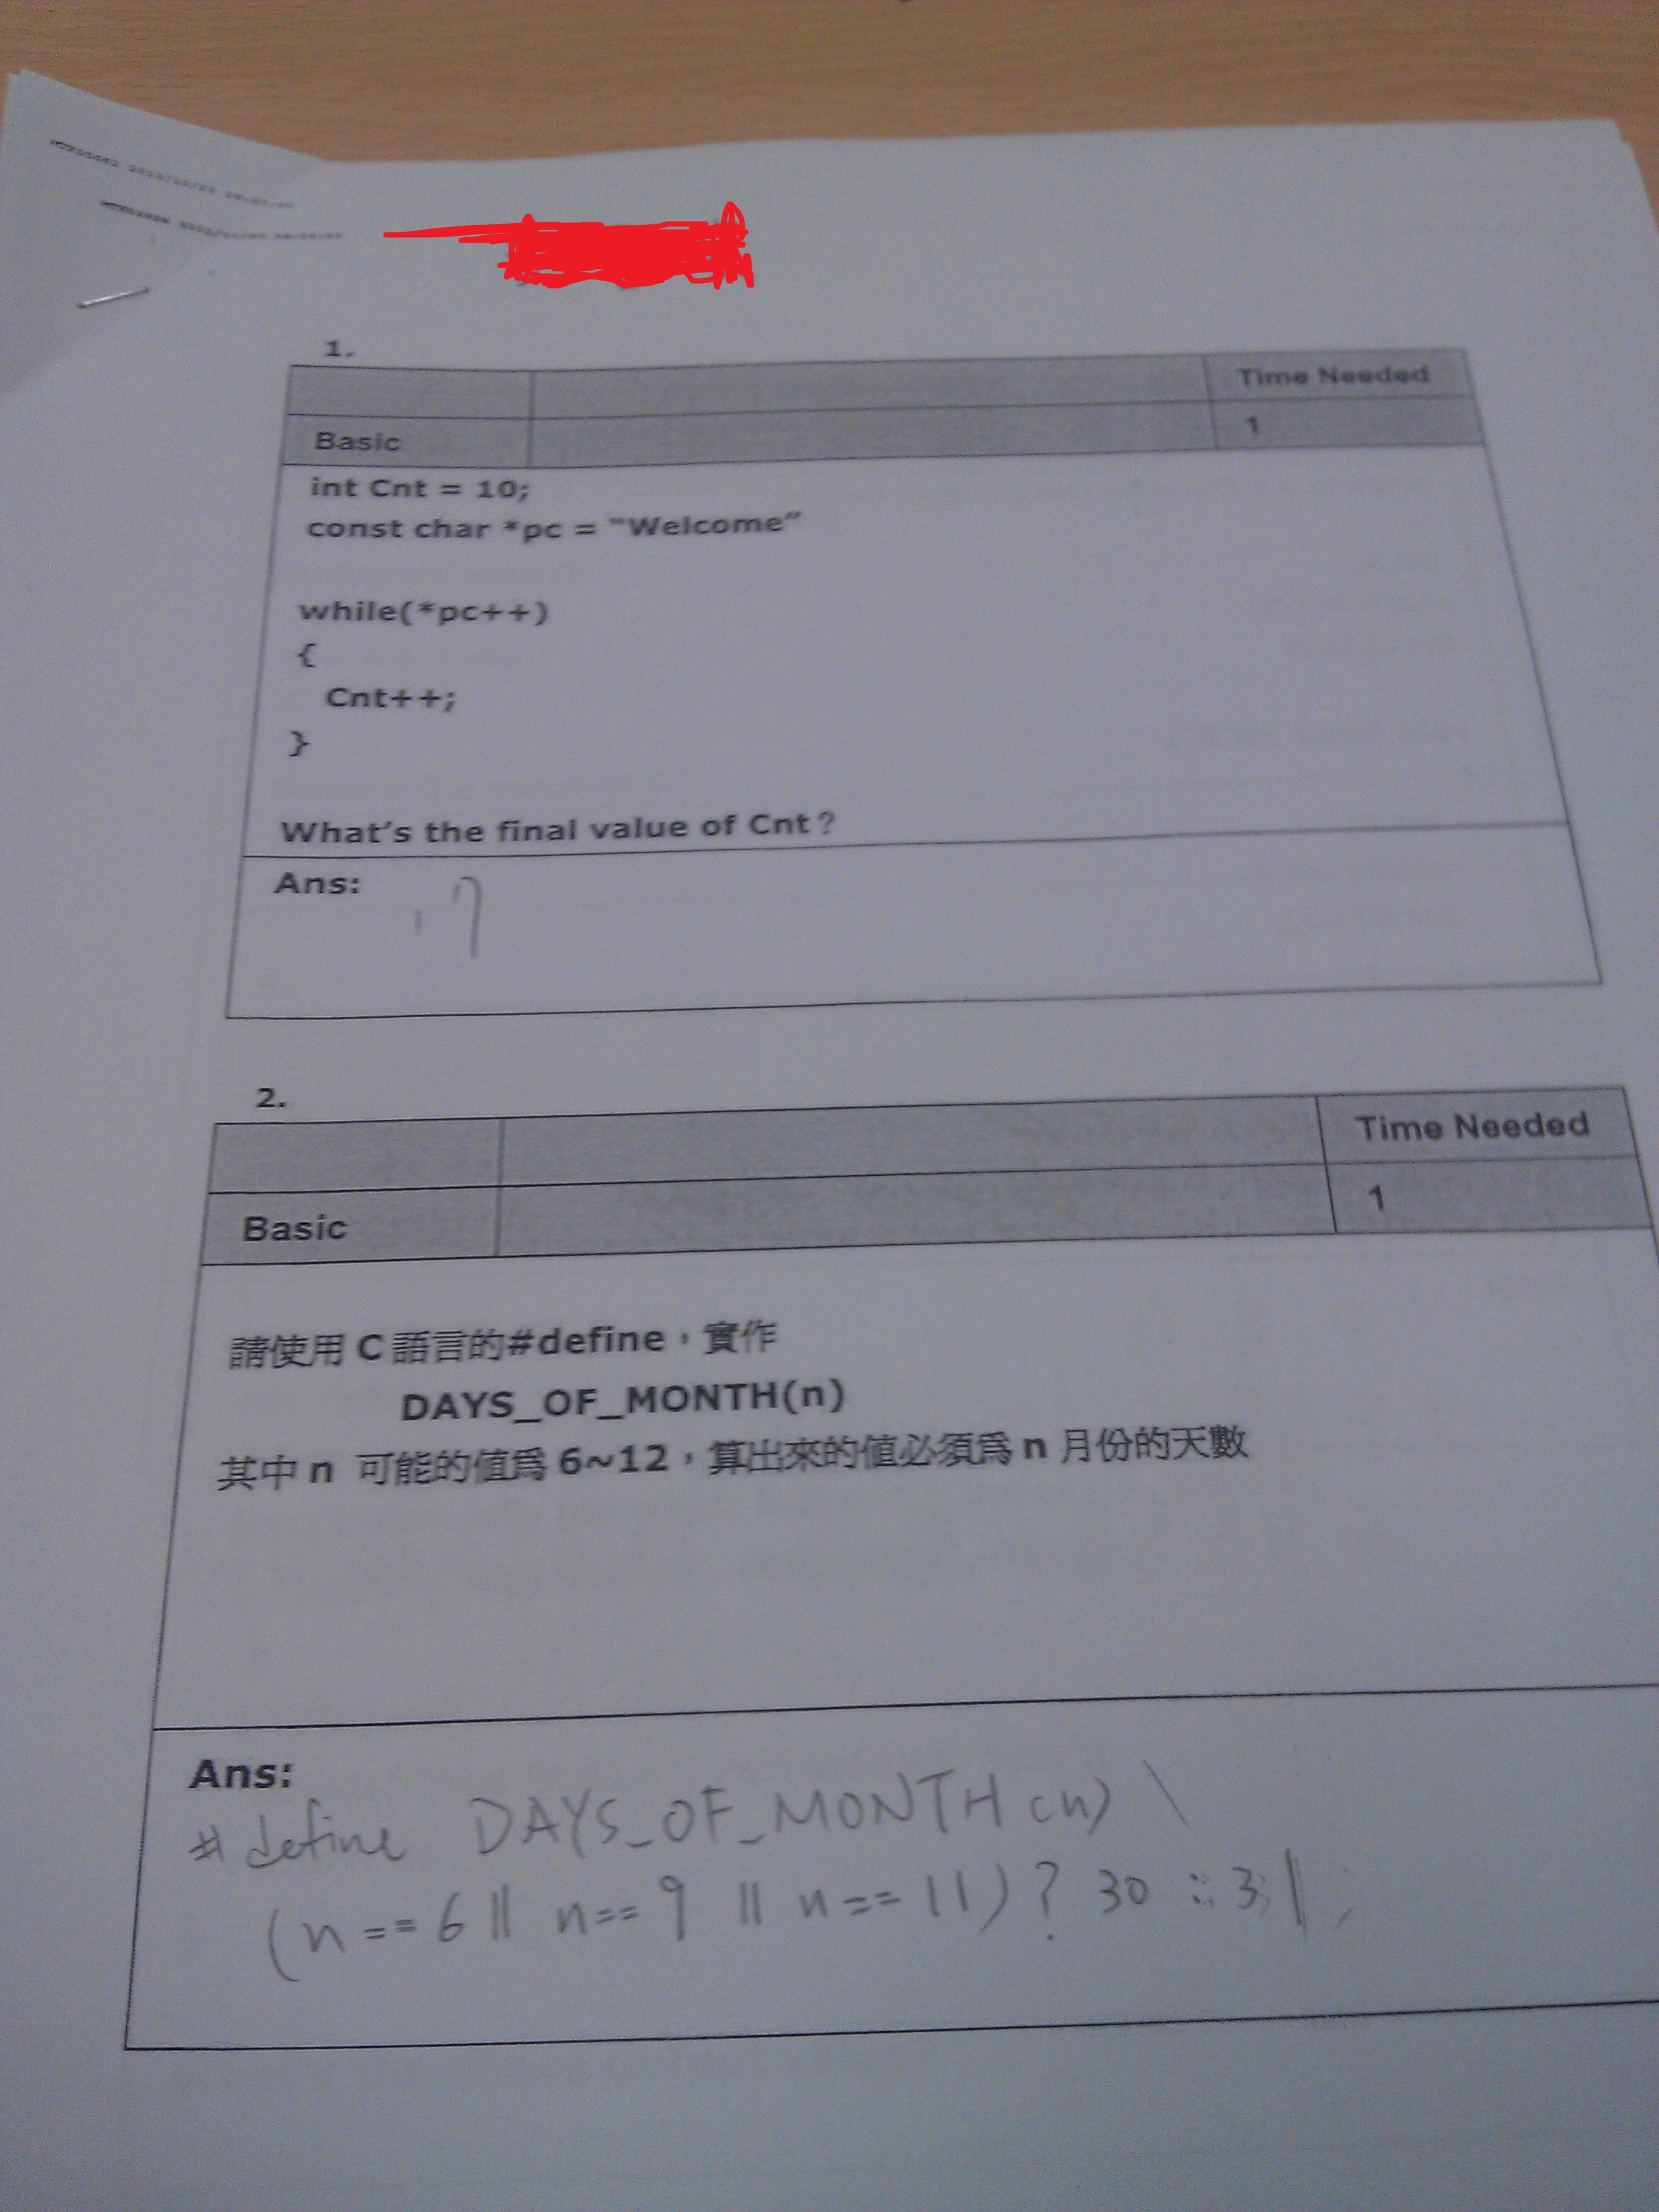 1.
Time Needed
Basic 1
int Cnt = 10;
const char *pc = “Welcome”
while(*pc++)
{
Cnt++;
}
What’s the final value of Cnt?
Ans: 17
2.
Time Needed
Basic 1
請使用 C 語言的#define，實作
DAYS_OF_MONTH(n)
其中 n 可能的值爲 6~12，算出來的值必須爲 n 月份的天數
Ans:
#define DAYS_OF_MONTH(n) \
(n==6 || n==9 || n==11)? 30 : 31;